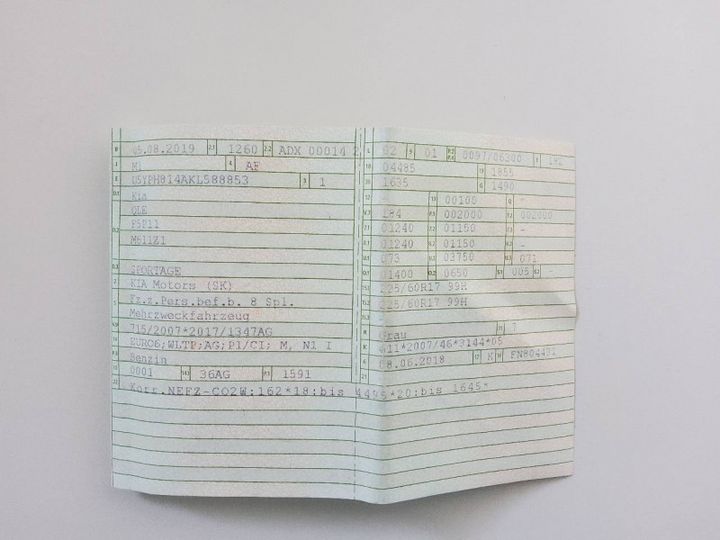 05.08.2019 2.1 1260 2.2 ADX 00014 2
M1 4 AF
U5YPH814AKL588853 3 1
Kia
QLE
M611Z1
SPORTAGE
KIA Motors (SK)
Fz.z.Pers.bef.b. 8 Spl.
Mehrzweckfahrzeug
715/2007*2017/1347AG
EURO6;WLTP;AG;PI/CI; M, N1 I
Benzin
0001 36AG 1591
Korr.NEFZ-CO2W:162*18:bis 4495*20:bis 1645*
02 9 01 0097/06300
04485 1855
1635 1490
00100 -
184 002000 002000
01240 01150 -
01240 01150 -
073 03750 071
01400 0650 005 -
225/60R17 99H
225/60R17 99H
Grau 7
*2007/46*3144*05
08.06.2018 K